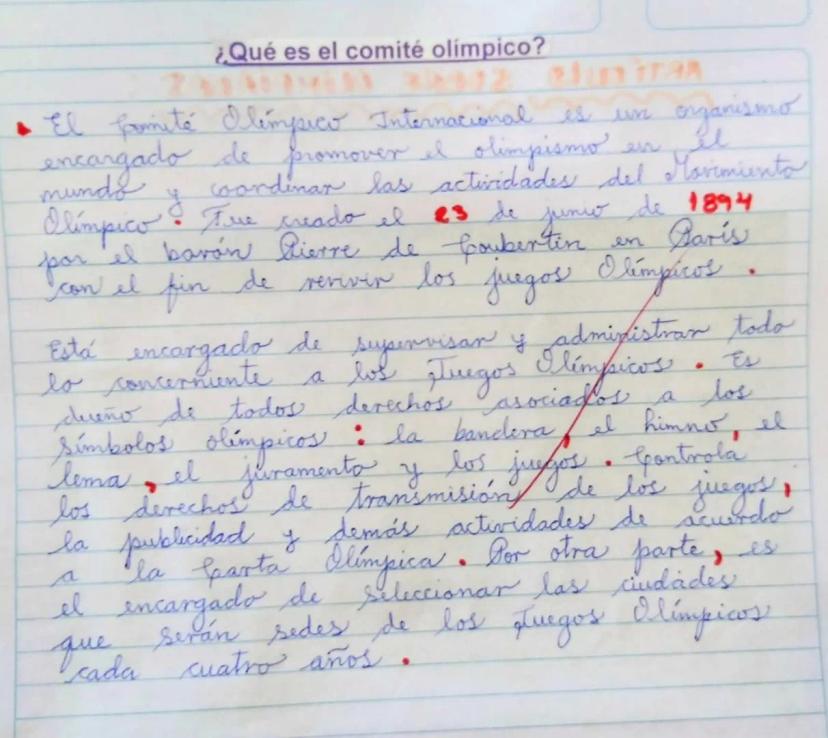 ¿Qué es el comité olímpico?
El Comité Olímpico Internacional es un organismo
encargado de promover el olimpismo en el
mundo y coordinar las actividades del Movimiento
Olímpico. Fue creado el 23 de junio de 1894
por el barón Pierre de Coubertin en París
con el fin de revivir los juegos Olímpicos.
Está encargado de supervisar y administrar todo
lo concerniente a los Juegos Olímpicos. Es
dueño de todos derechos asociados a los
símbolos olímpicos: la bandera, el himno, el
lema, el juramento y los juegos. Controla
los derechos de transmisión de los juegos,
la publicidad y demás actividades de acuerdo
a la Carta Olímpica. Por otra parte, es
el encargado de seleccionar las ciudades
que serán sedes de los Juegos Olímpicos
cada cuatro años.